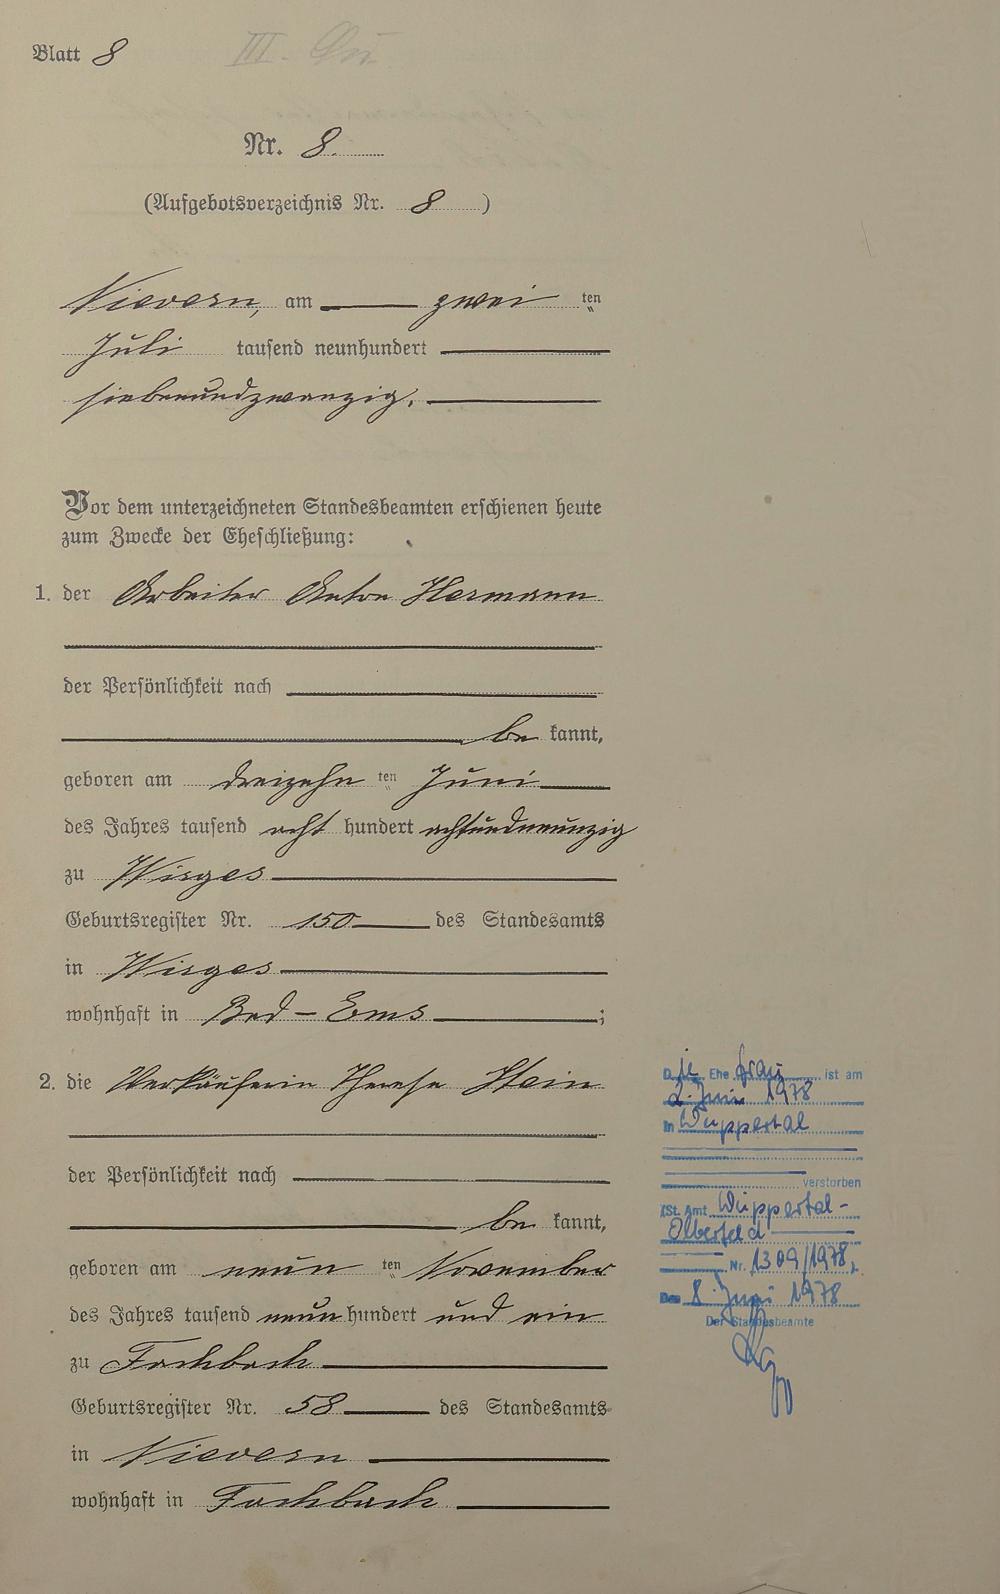 Blatt 8
III.
Nr. 8.
(Aufgebotsverzeichnis Nr. 8)
Nievern, am zwei ten
Juli tausend neunhundert
siebenundzwanzig.
Vor dem unterzeichneten Standesbeamten erschienen heute
zum Zwecke der Eheschließung:
1. der Arbeiter Anton Hermann
der Persönlichkeit nach
be kannt,
geboren am dreizehn ten Juni
des Jahres tausend acht hundert achtundneunzig
zu Wirges
Geburtsregister Nr. 150 des Standesamts
in Wirges
wohnhaft in Bad-Ems ;
2. die Verkäuferin Therese Stein
der Persönlichkeit nach
be kannt,
geboren am neun ten November
des Jahres tausend neun hundert und ein
zu Fachbach
Geburtsregister Nr. 58 des Standesamts
in Nievern
wohnhaft in Fachbach
Die Ehefrau ist am
2. Juni 1978
in Wuppertal
verstorben
(St. Amt Wuppertal-
Elberfeld
Nr. 1309/1978,
Den 8. Juni 1978
Der Standesbeamte